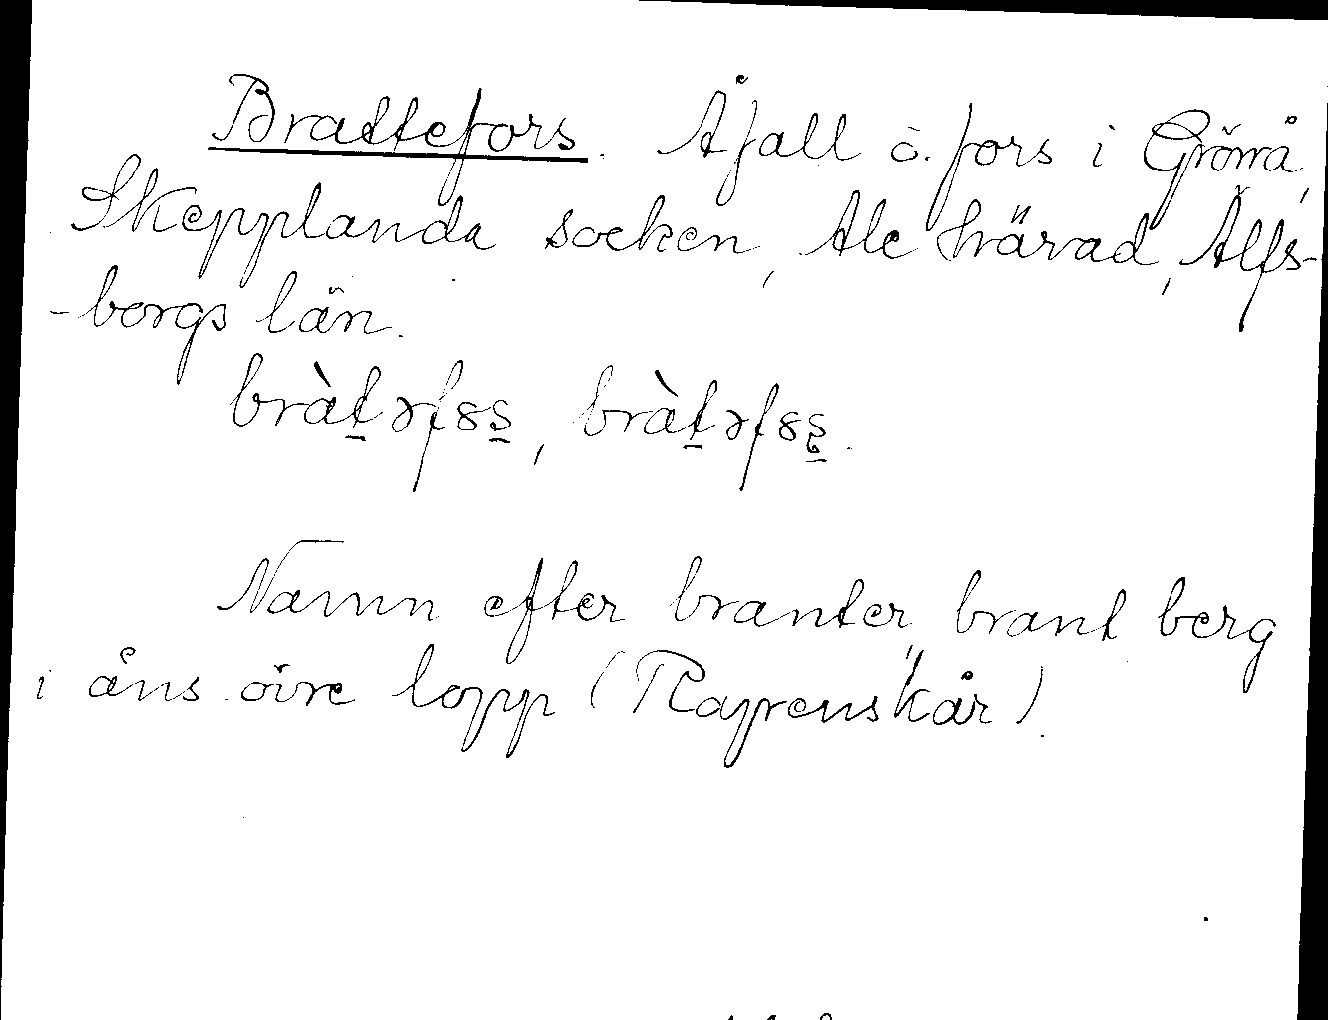 Brattefors. Åfall o. fors i Grönå,
Skepplanda socken, Ale härad, Älfs-
-borgs län.
bràt̲əfꝏs̲, bràt̲əfꝏs̲.
Namn efter branter, brant berg
i åns övre lopp (Rapenskår).